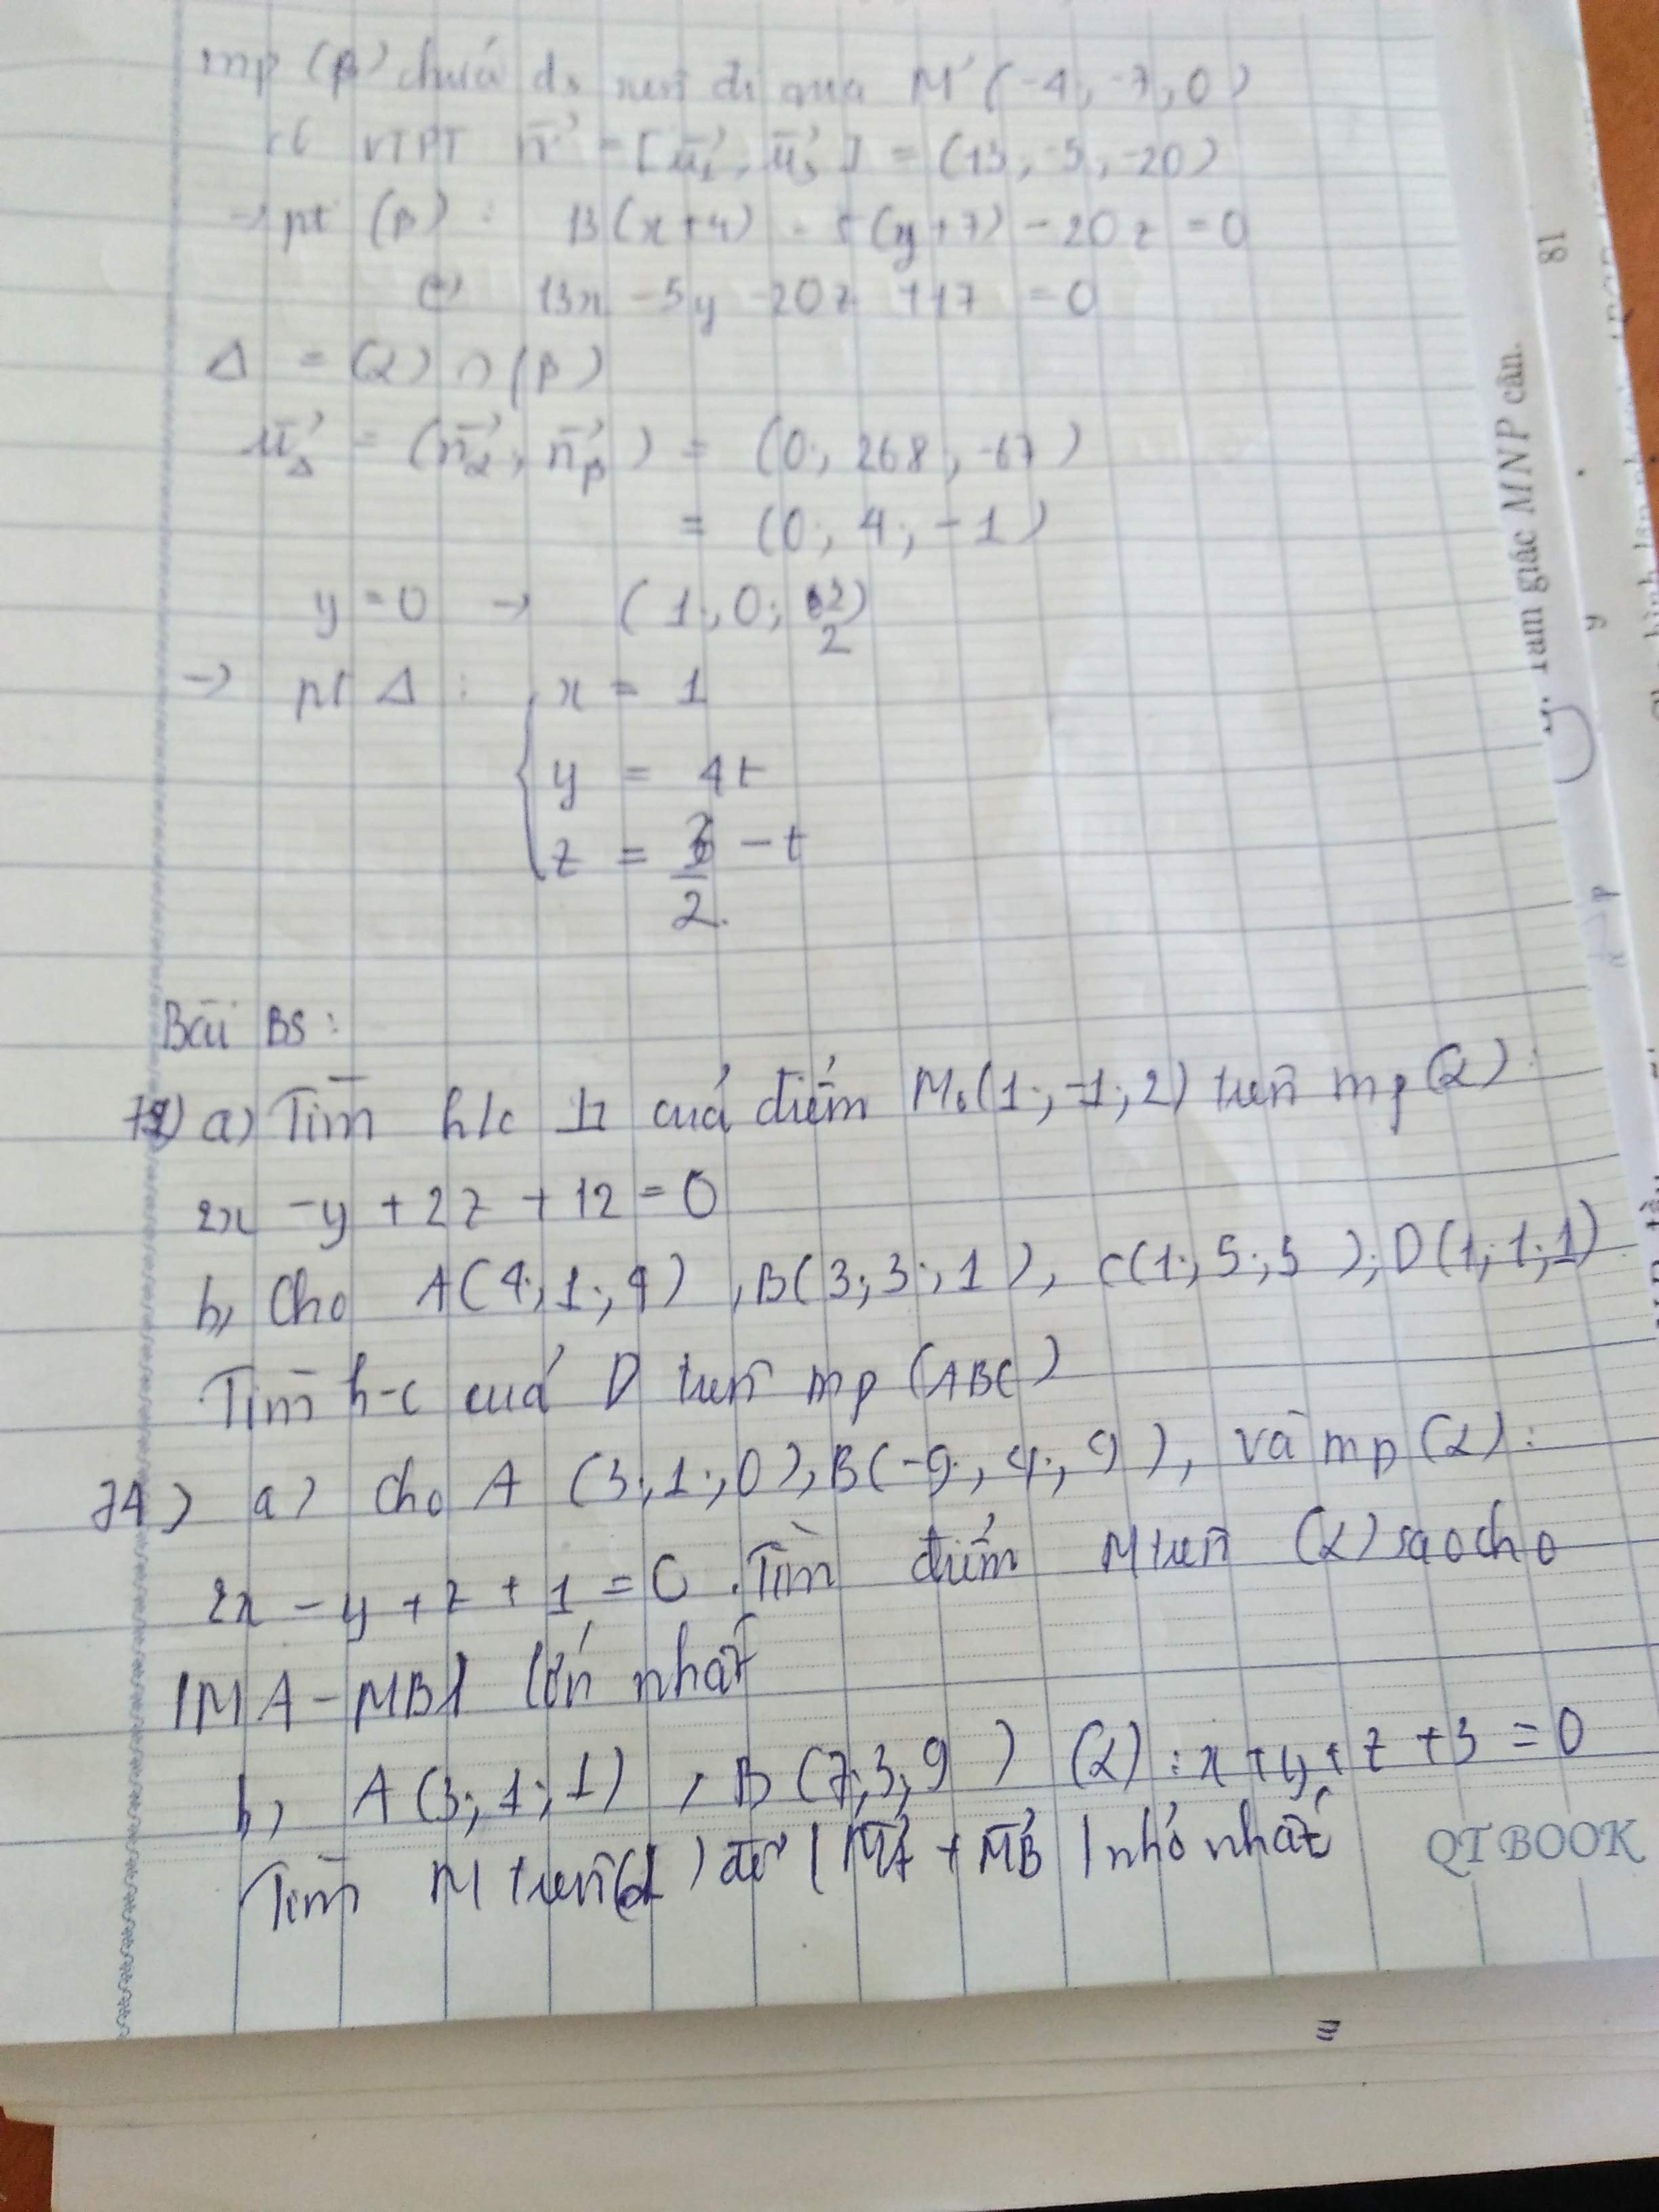 mp (β) chứa d₃ nên đi qua M' (-4; -7; 0)
có VTPT n⃗ = [u⃗₁, u⃗₃] = (13; -5; -20)
→ pt (β) : 13(x+4) - 5(y+7) - 20z = 0
⇔ 13x - 5y - 20z + 17 = 0
Δ = (α) ∩ (β)
u⃗Δ = (n⃗α, n⃗β) = (0; 268; -67)
= (0; 4; -1)
y = 0 → (1; 0; 3/2)
→ pt Δ : { x = 1
y = 4t
z = 3/2 - t
Bài BS:
a) Tìm h/c ⊥ của điểm M₀(1; -1; 2) trên mp (α):
2x - y + 2z + 12 = 0
b, Cho A(4; 1; 4), B(3; 3; 1), C(1; 5; 5); D(1; 1; 1)
Tìm h-c của D trên mp (ABC)
74) a) cho A (3; 1; 0), B(-9; 4; 9), và mp (α):
2x - y + z + 1 = 0. Tìm điểm M trên (α) sao cho
|MA - MB| lớn nhất
b, A(3; 1; 1), B(7; 3; 9) (α): x + y + z + 3 = 0
Tìm M trên (α) để |M⃗A + M⃗B| nhỏ nhất
QTBOOK
81
Tam giác MNP cân.
y
p